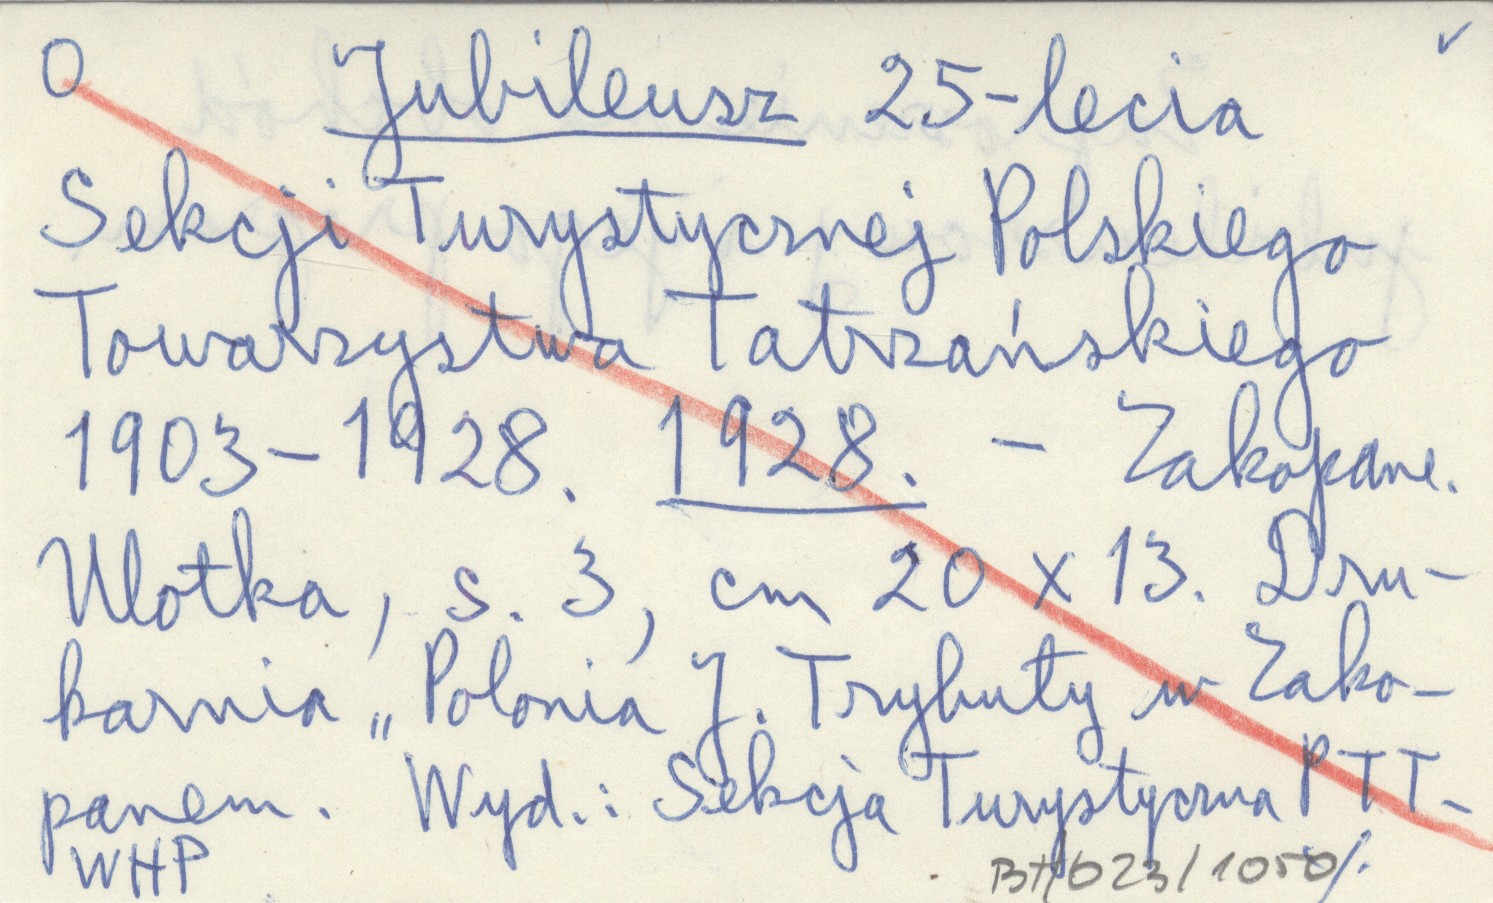 O Jubileusz 25-lecia
Sekcji Turystycznej Polskiego
Towarzystwa Tatrzańskiego
1903-1928. 1928. - Zakopane.
Ulotka, s. 3, cm 20 x 13. Dru-
karnia „Polonia" J. Trybuły w Zako-
panem. Wyd.: Sekcja Turystyczna PTT-
WHP BH/023/1050/.